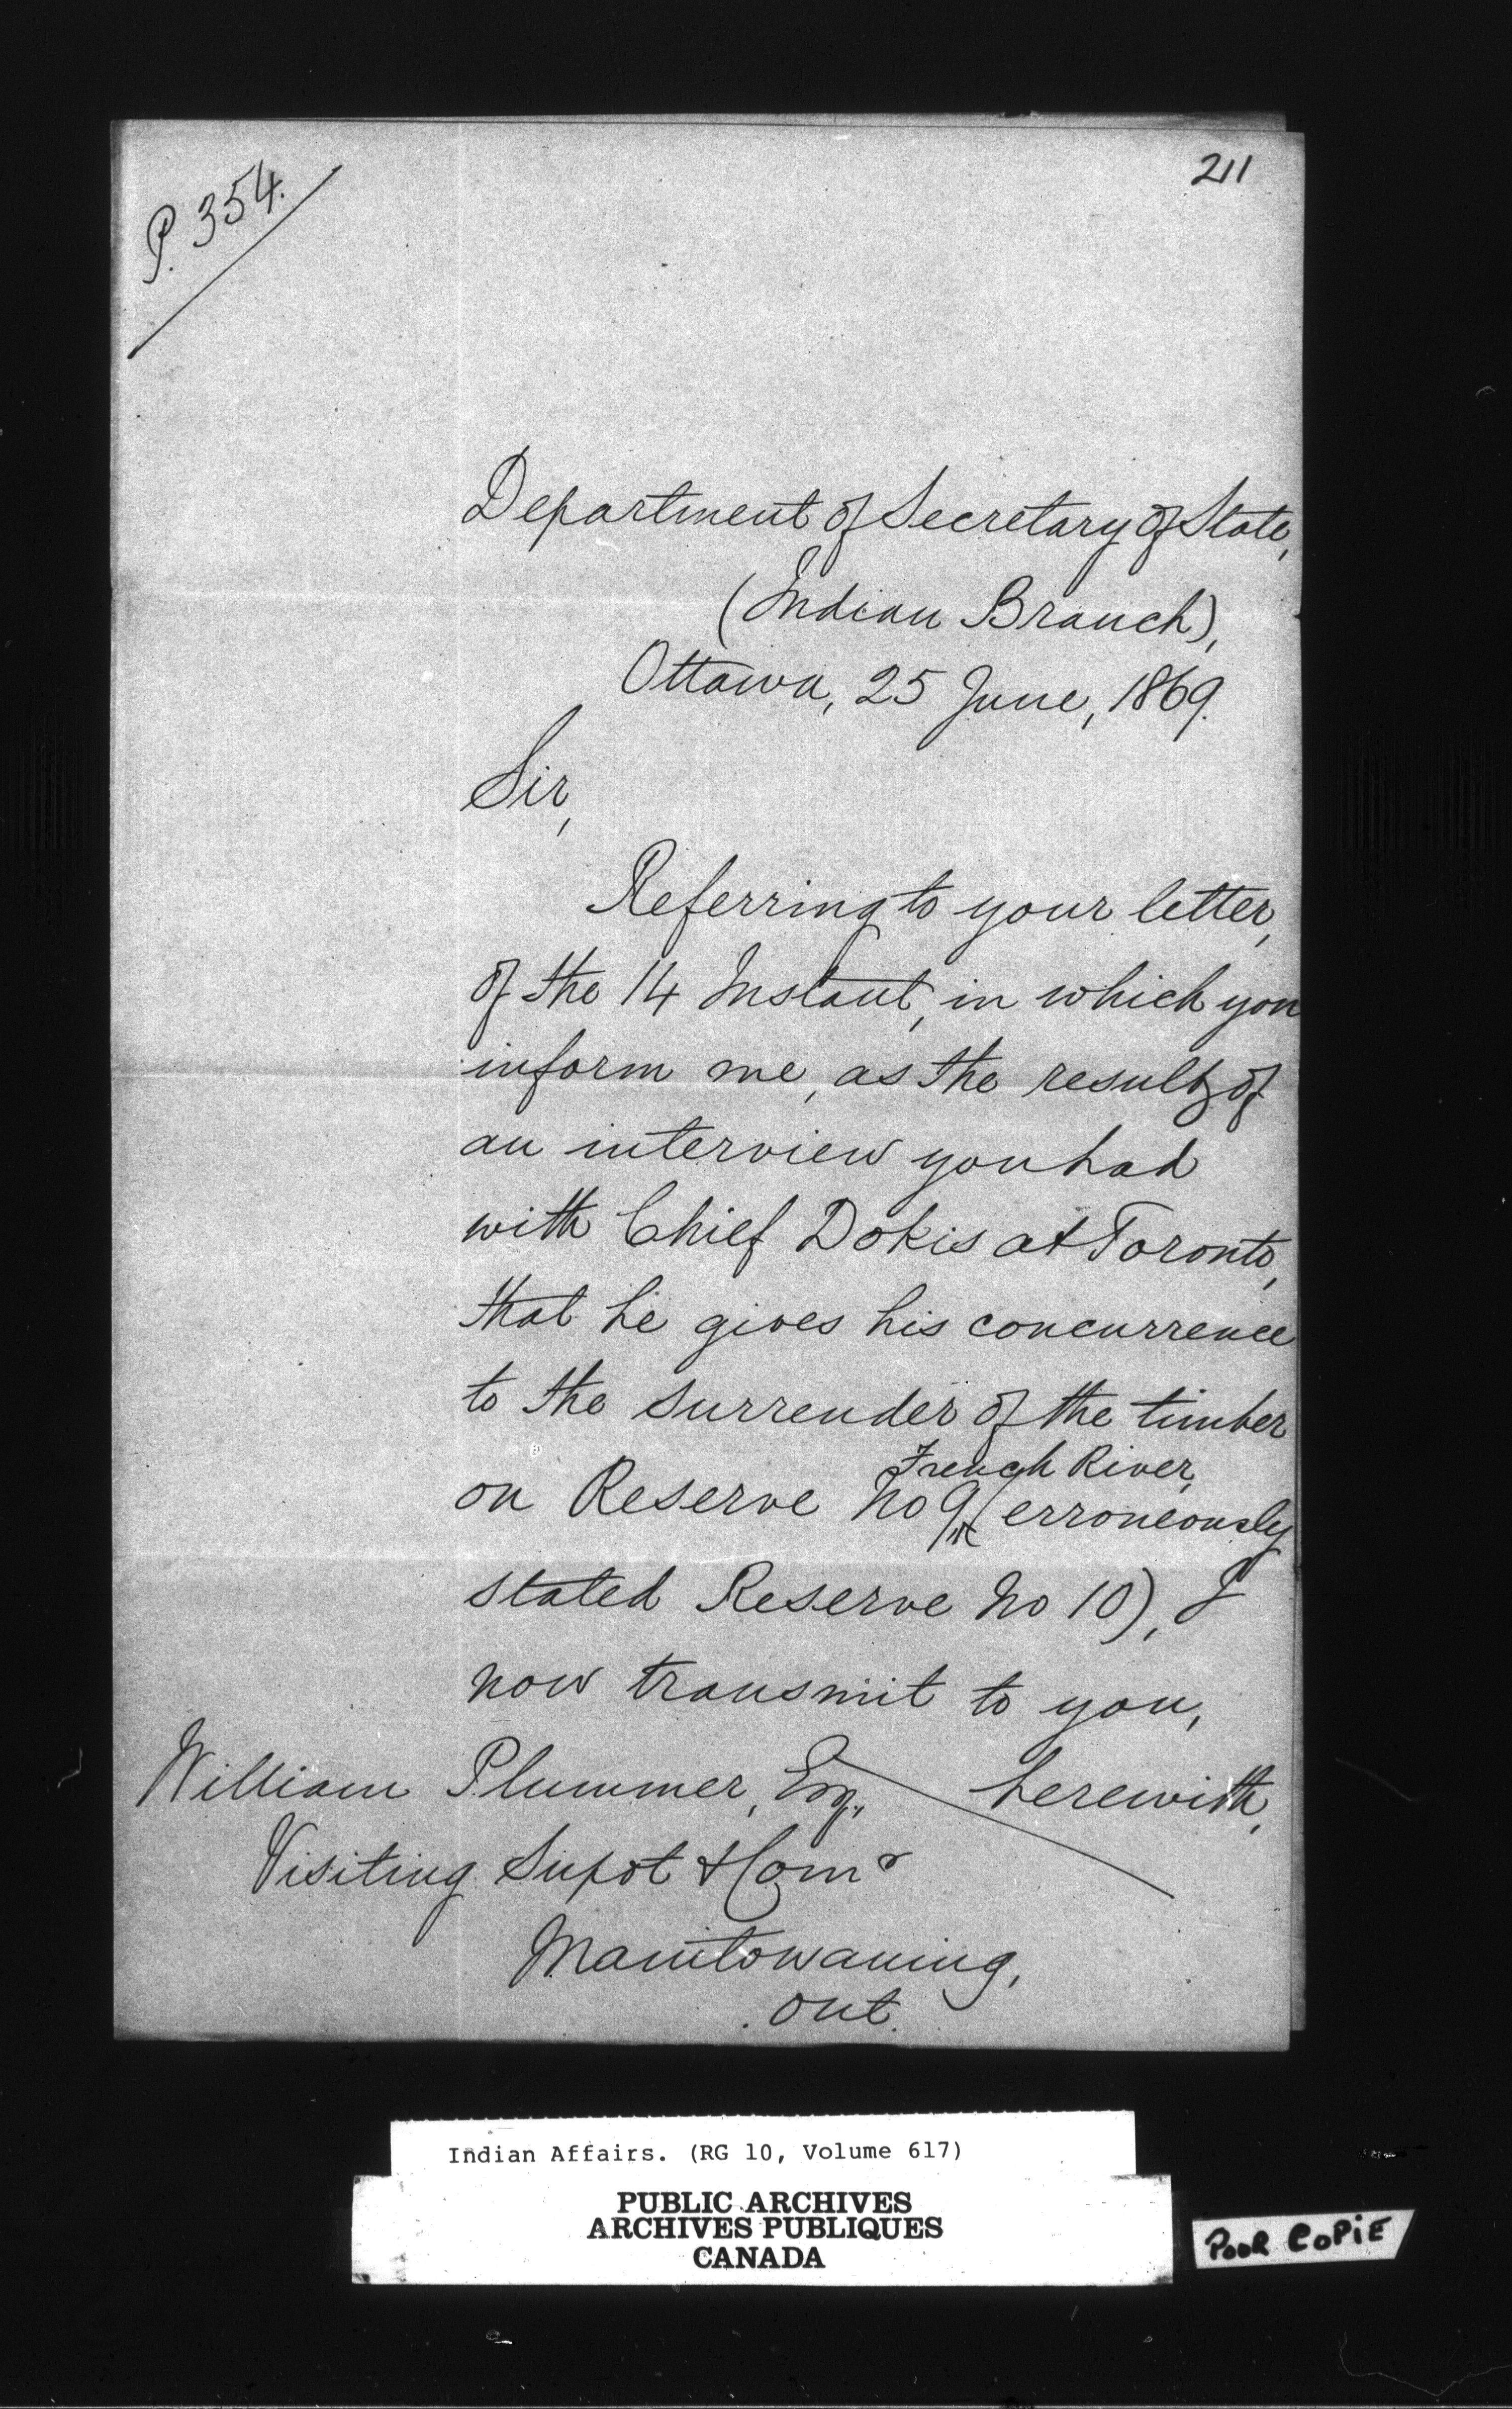 P. 354.
211
Department of Secretary of State,
(Indian Branch),
Ottawa, 25 June, 1869.
Sir,
Referring to your letter,
of the 14 Instant, in which you
inform me, as the result, of
an interview you had
with Chief Dokis at Toronto,
that he gives his concurrence
to the surrender of the timber
French River,
on Reserve No 9, (erroneously
stated Reserve No 10), I
now transmit to you,
herewith,
William Plummer, Esq.,
Visiting Supdt & Comr
Manitowaning,
Ont.
Indian Affairs. (RG 10, Volume 617)
PUBLIC ARCHIVES
ARCHIVES PUBLIQUES
CANADA
POOR COPIE